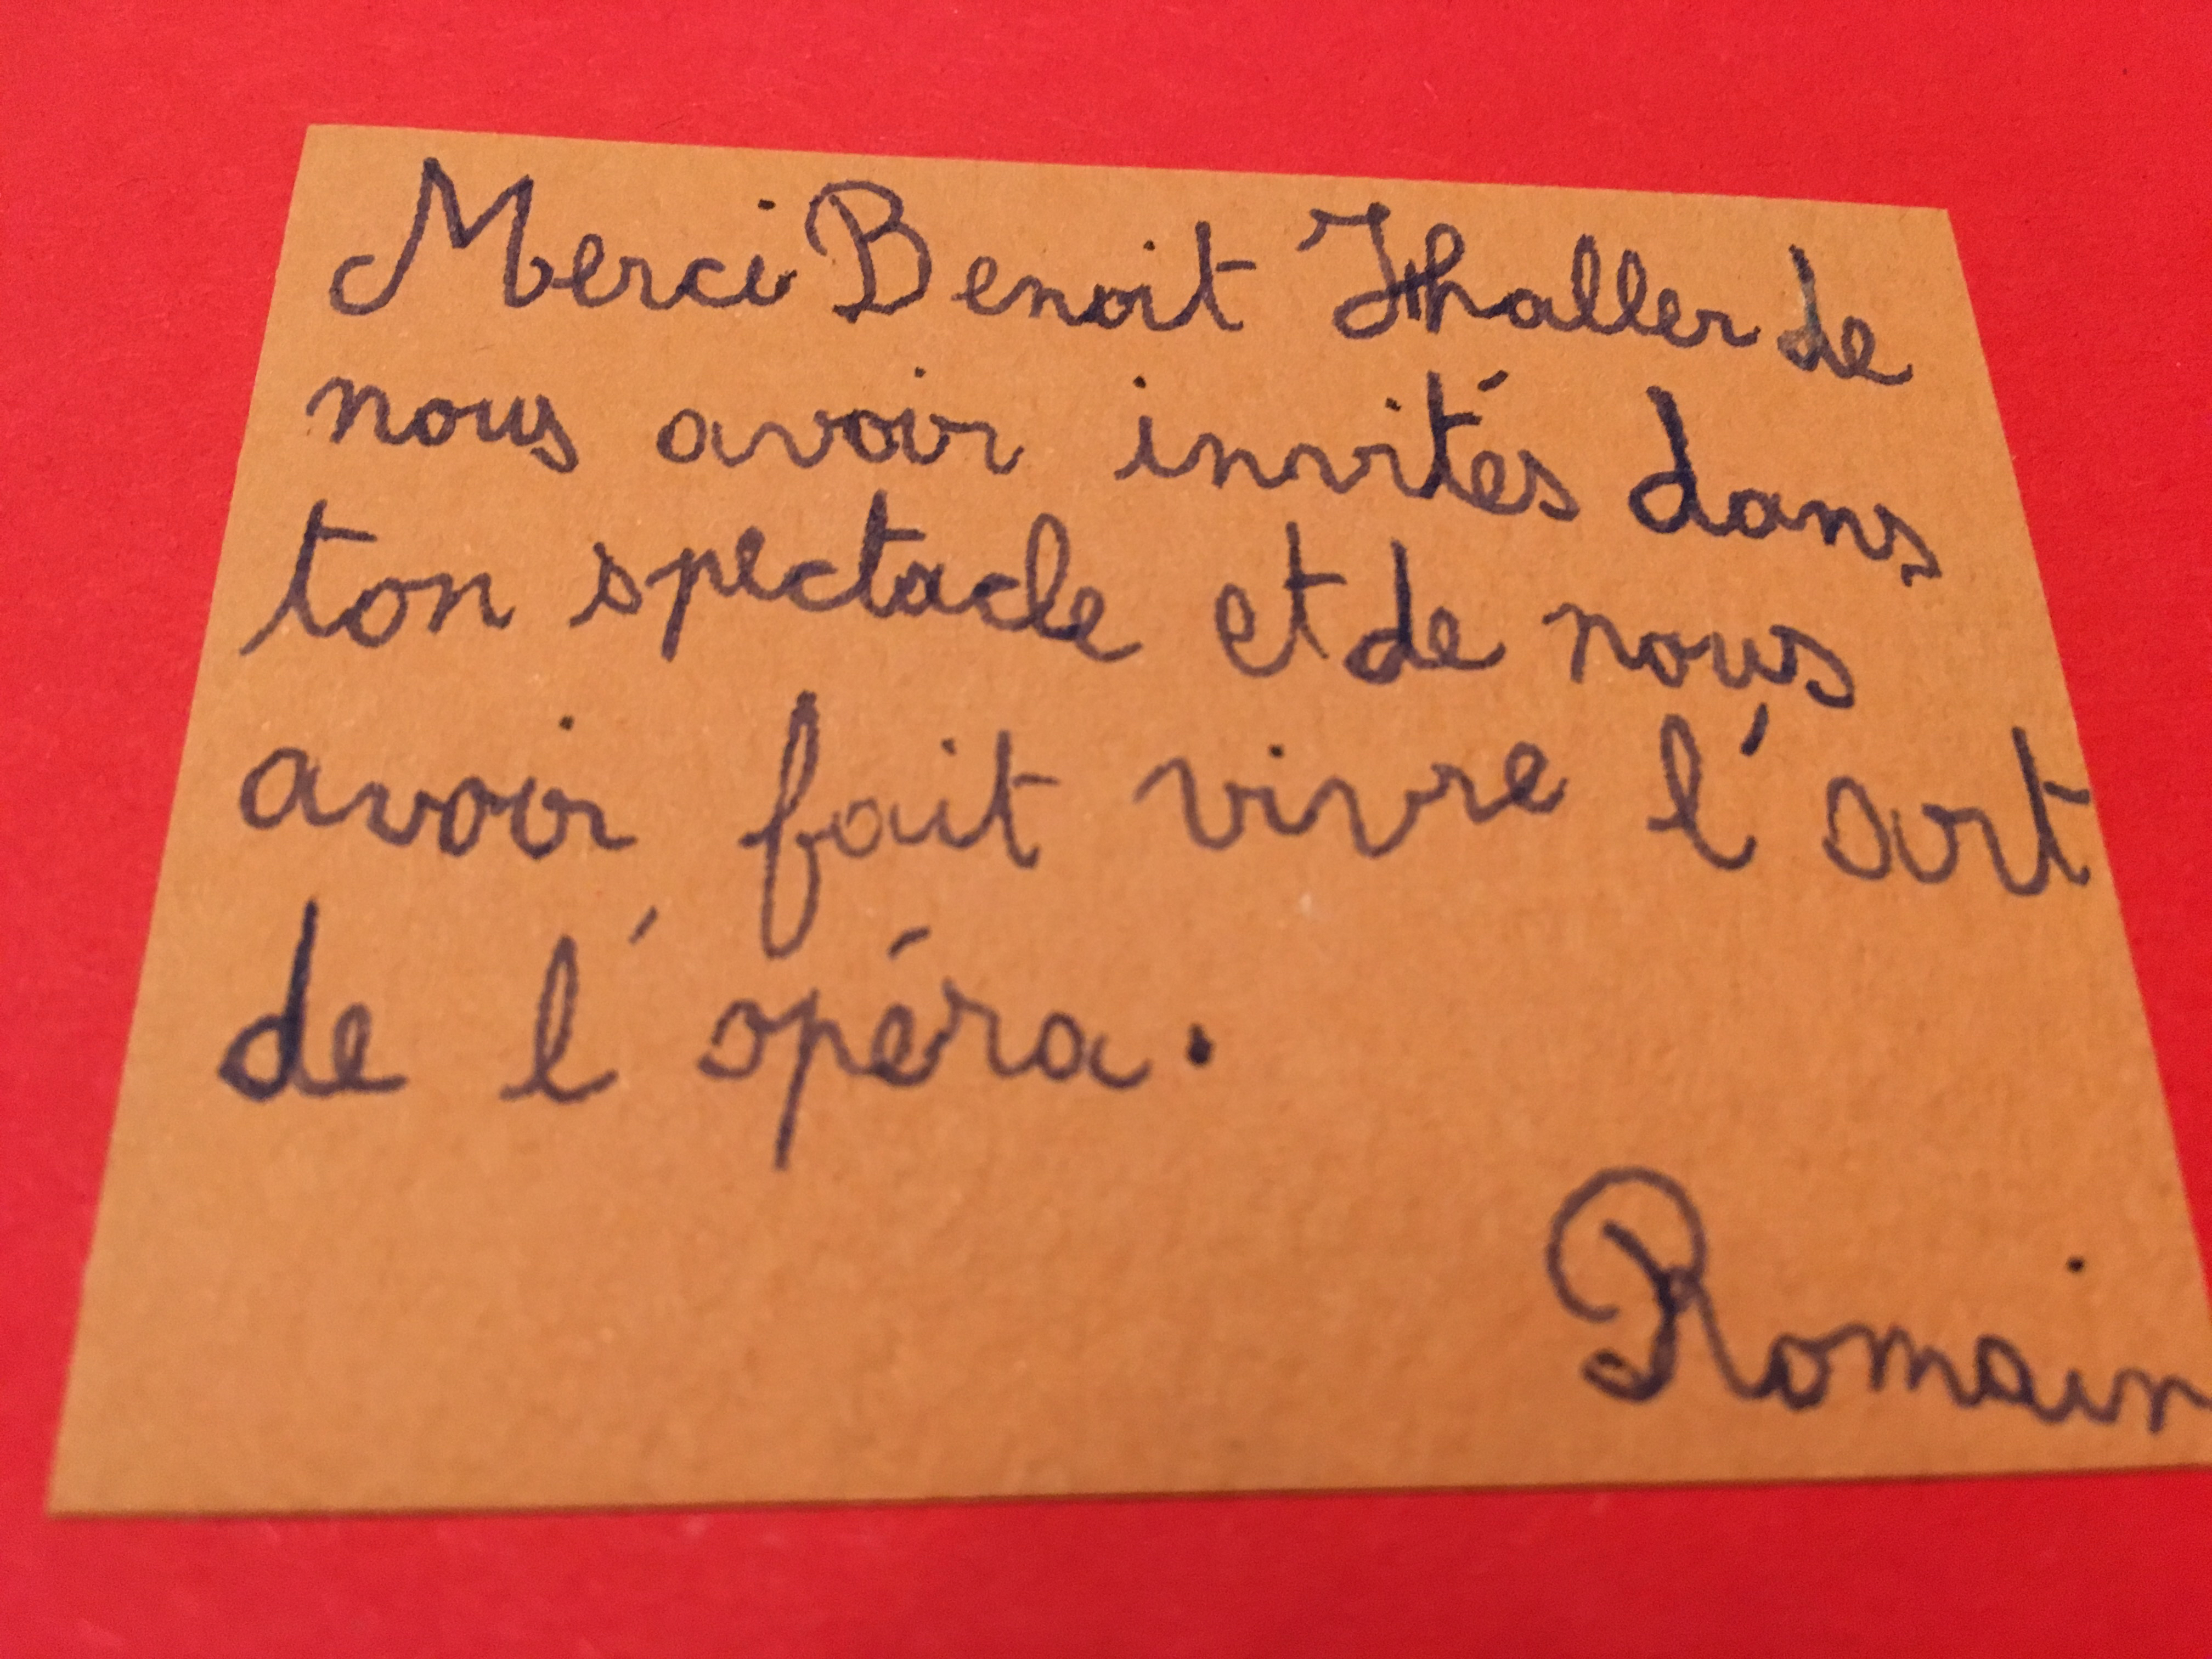 Merci Benoit Haller de
nous avoir invités dans
ton spectacle et de nous
avoir fait vivre l'art
de l'opéra.
Romain